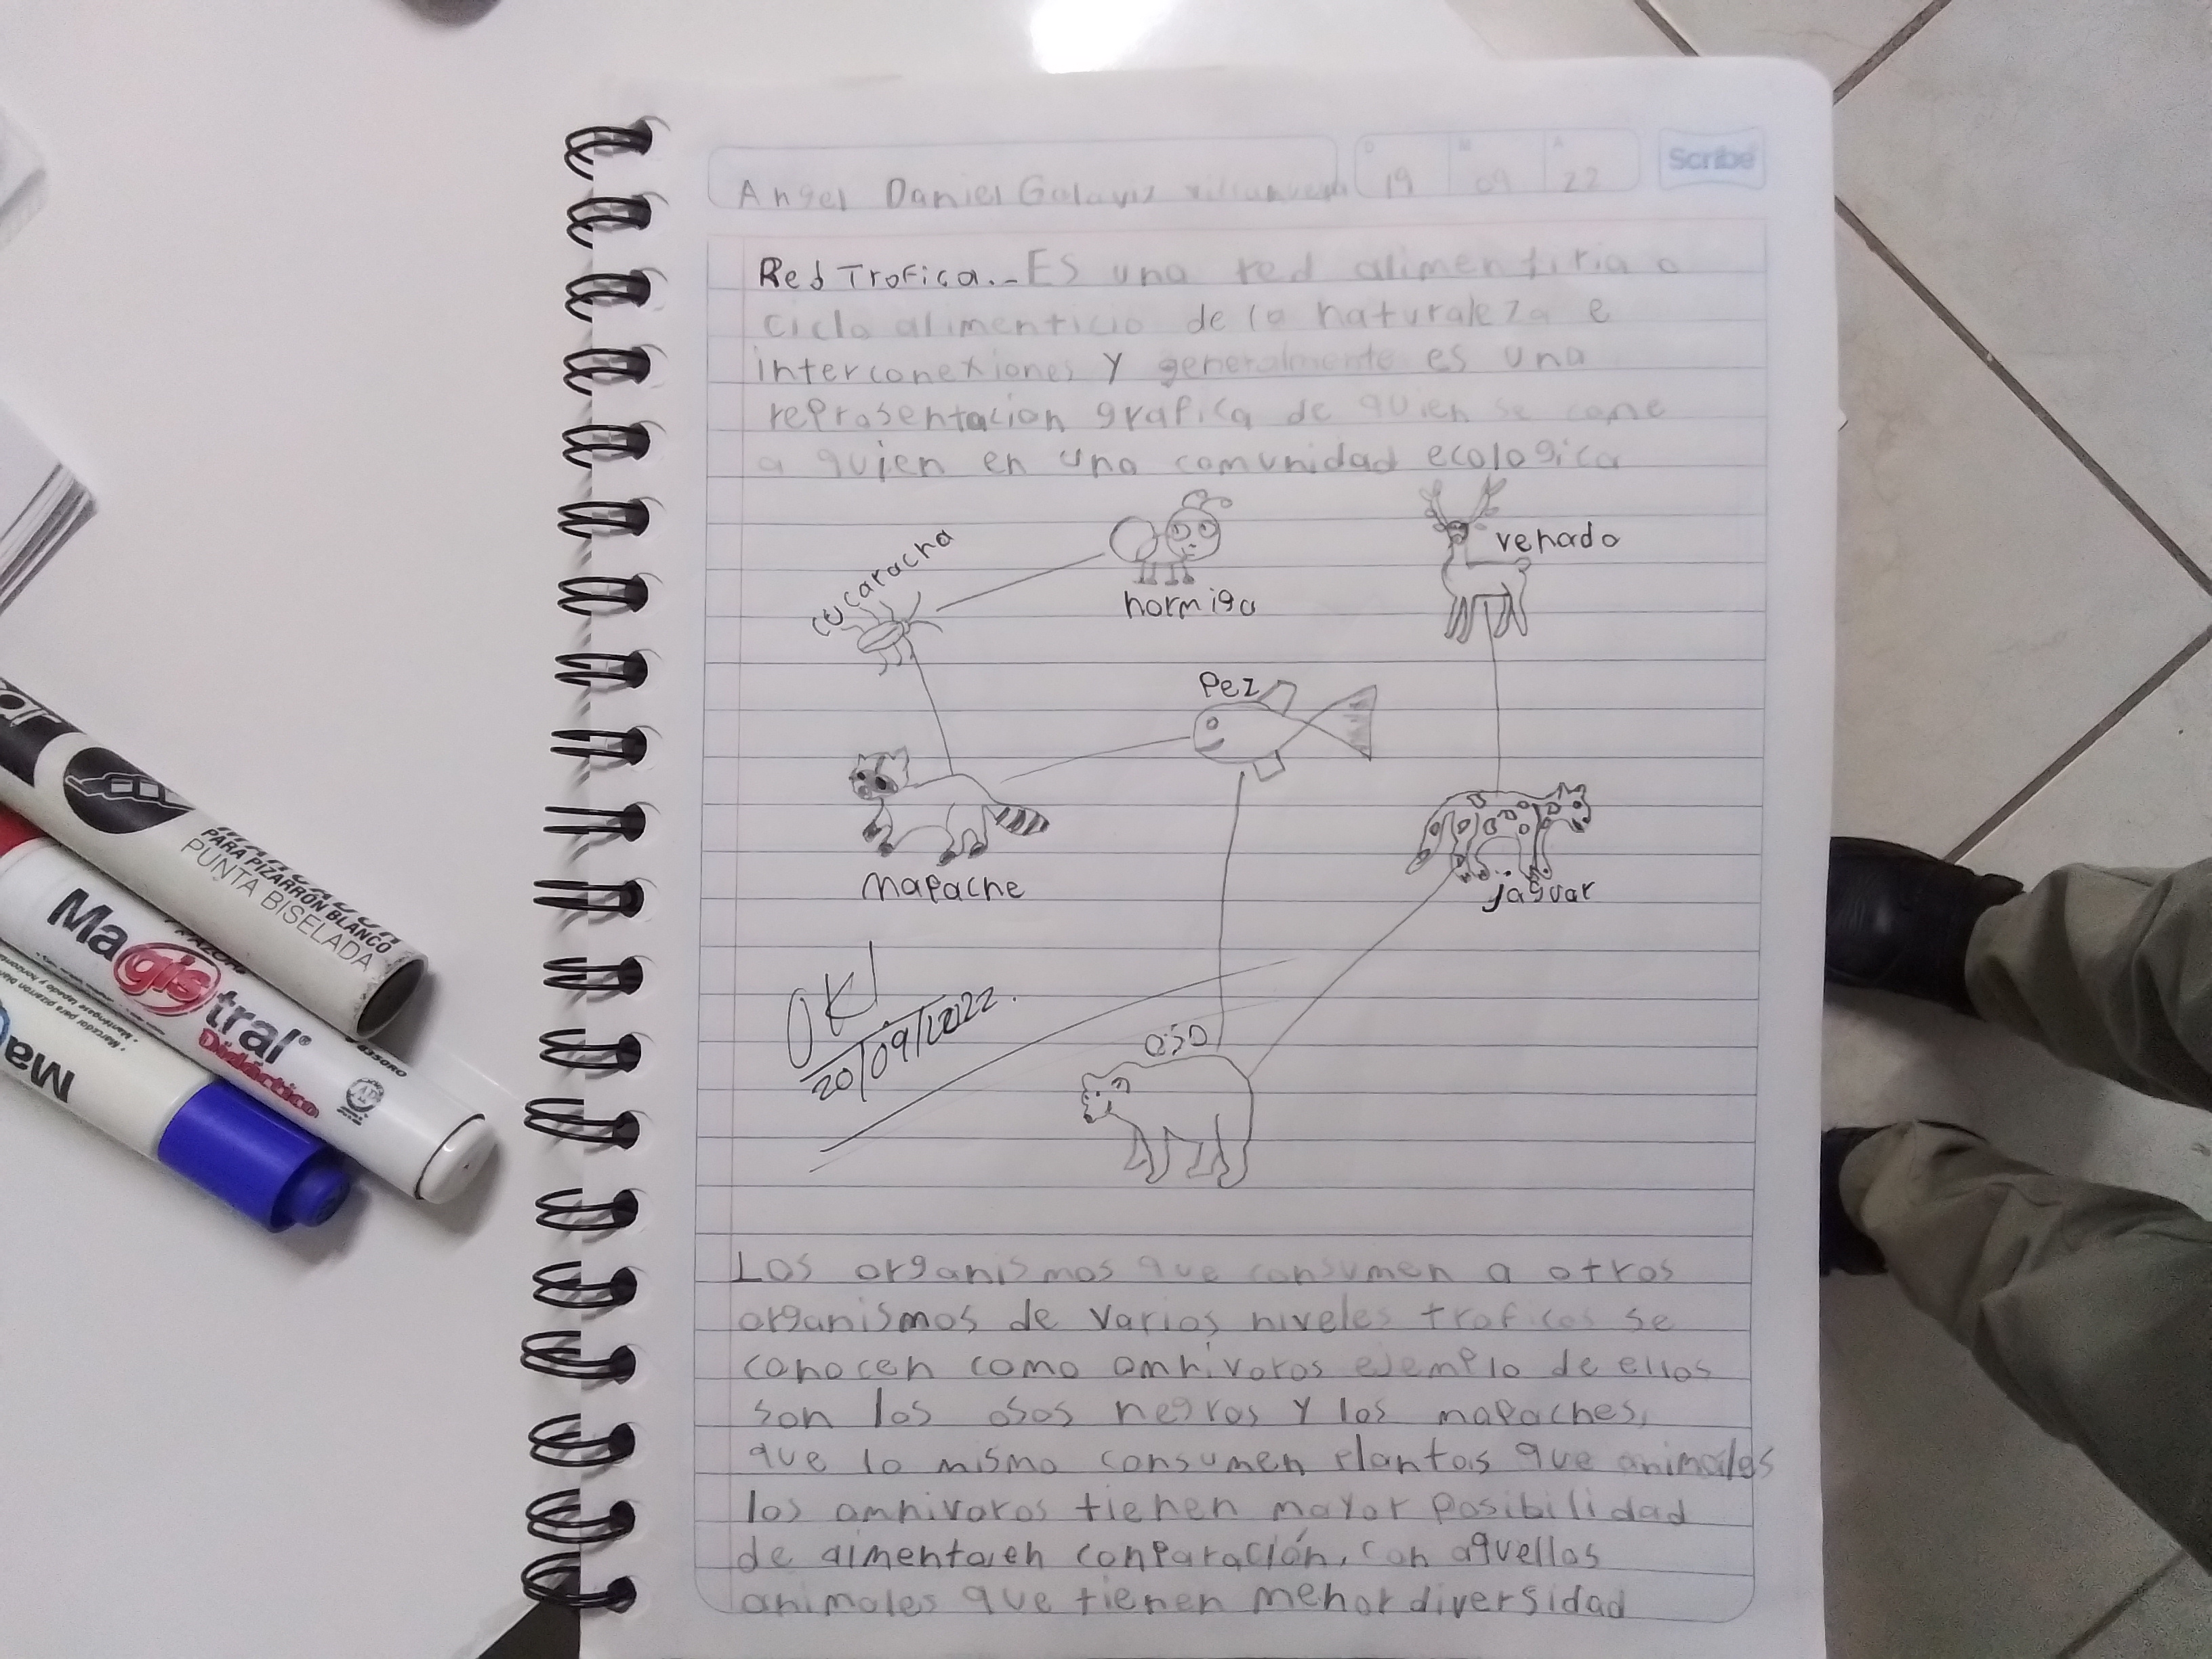 Angel Daniel Galaviz Villanueva
D 19 M 09 A 22
Scribe
Red Trofica.- Es una red alimentiria o
ciclo alimenticio de la naturaleza e
interconexiones y generalmente es una
reprosentacion grafica de quien se come
a quien en una comunidad ecologica
cucaracha
hormiga
venado
Pez
mapache
jaguar
OK!
20/09/2022.
oso
Los organismos que consumen a otros
organismos de varios niveles troficos se
conocen como omnivoros ejemplo de ellos
son los osos negros y los mapaches,
que lo mismo consumen plantas que animales
los omnivoros tienen mayor posibilidad
de alimento en conparación, con aquellos
animales que tienen menor diversidad
PARA PIZARRÓN BLANCO
PUNTA BISELADA
Magistral
Didáctico
Ma